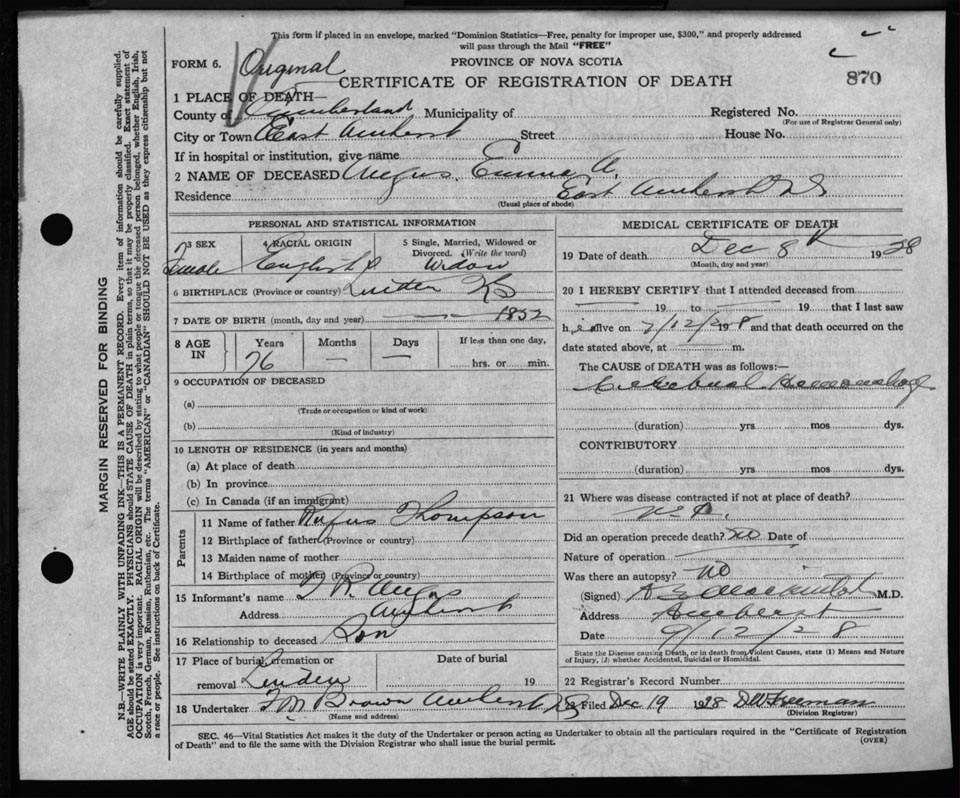 This form if placed in an envelope, marked "Dominion Statistics—Free, penalty for improper use, $300," and properly addressed
will pass through the Mail "FREE"
FORM 6.
Original
PROVINCE OF NOVA SCOTIA
CERTIFICATE OF REGISTRATION OF DEATH
870
1 PLACE OF DEATH—
County of Cumberland Municipality of Registered No.
(For use of Registrar General only)
City or Town East Amherst Street House No.
If in hospital or institution, give name
2 NAME OF DECEASED Angus, Emma A.
Residence East Amherst NS
(Usual place of abode)
PERSONAL AND STATISTICAL INFORMATION
3 SEX 4 RACIAL ORIGIN 5 Single, Married, Widowed or
Divorced. (Write the word)
Female English Widow
6 BIRTHPLACE (Province or country) Linden NS
7 DATE OF BIRTH (month, day and year) — — 1852
8 AGE IN Years Months Days If less than one day,
76 — — hrs. or min.
9 OCCUPATION OF DECEASED
(a)
(Trade or occupation or kind of work)
(b)
(Kind of industry)
10 LENGTH OF RESIDENCE (in years and months)
(a) At place of death
(b) In province
(c) In Canada (if an immigrant)
Parents
11 Name of father Rufus Thompson
12 Birthplace of father (Province or country)
13 Maiden name of mother
14 Birthplace of mother (Province or country)
15 Informant's name R. Angus
Address Amherst
16 Relationship to deceased Son
17 Place of burial, cremation or Date of burial
removal Linden 19
18 Undertaker F M Brown Amherst NS
(Name and address)
MEDICAL CERTIFICATE OF DEATH
19 Date of death Dec 8th 1928
(Month, day and year)
20 I HEREBY CERTIFY that I attended deceased from
19 to 19 that I last saw
h alive on 7/12/28 and that death occurred on the
date stated above, at m.
The CAUSE of DEATH was as follows:—
Cerebral Hemorrhage
(duration) yrs mos dys.
CONTRIBUTORY
(duration) yrs mos dys.
21 Where was disease contracted if not at place of death?
Did an operation precede death? No Date of
Nature of operation
Was there an autopsy? No
(Signed) M.D.
Address Amherst
Date 9/12/28
State the Disease causing Death, or in death from Violent Causes, state (1) Means and Nature
of Injury, (2) whether Accidental, Suicidal or Homicidal.
22 Registrar's Record Number
Filed Dec 19 1928 Freeman
(Division Registrar)
SEC. 46—Vital Statistics Act makes it the duty of the Undertaker or person acting as Undertaker to obtain all the particulars required in the "Certificate of Registration
of Death" and to file the same with the Division Registrar who shall issue the burial permit.
(OVER)
MARGIN RESERVED FOR BINDING
N.B.—WRITE PLAINLY WITH UNFADING INK—THIS IS A PERMANENT RECORD. Every item of information should be carefully supplied.
AGE should be stated EXACTLY. PHYSICIANS should STATE CAUSE OF DEATH in plain terms, so that it may be properly classified. Exact statement of
OCCUPATION is very important. RACIAL ORIGIN will be described by stating to what people or tongue the deceased person belonged, whether English, Irish,
Scotch, French, German, Russian, Ruthenian, etc. The terms "AMERICAN" or "CANADIAN" SHOULD NOT BE USED as they express citizenship but not
a race or people. See instructions on back of Certificate.